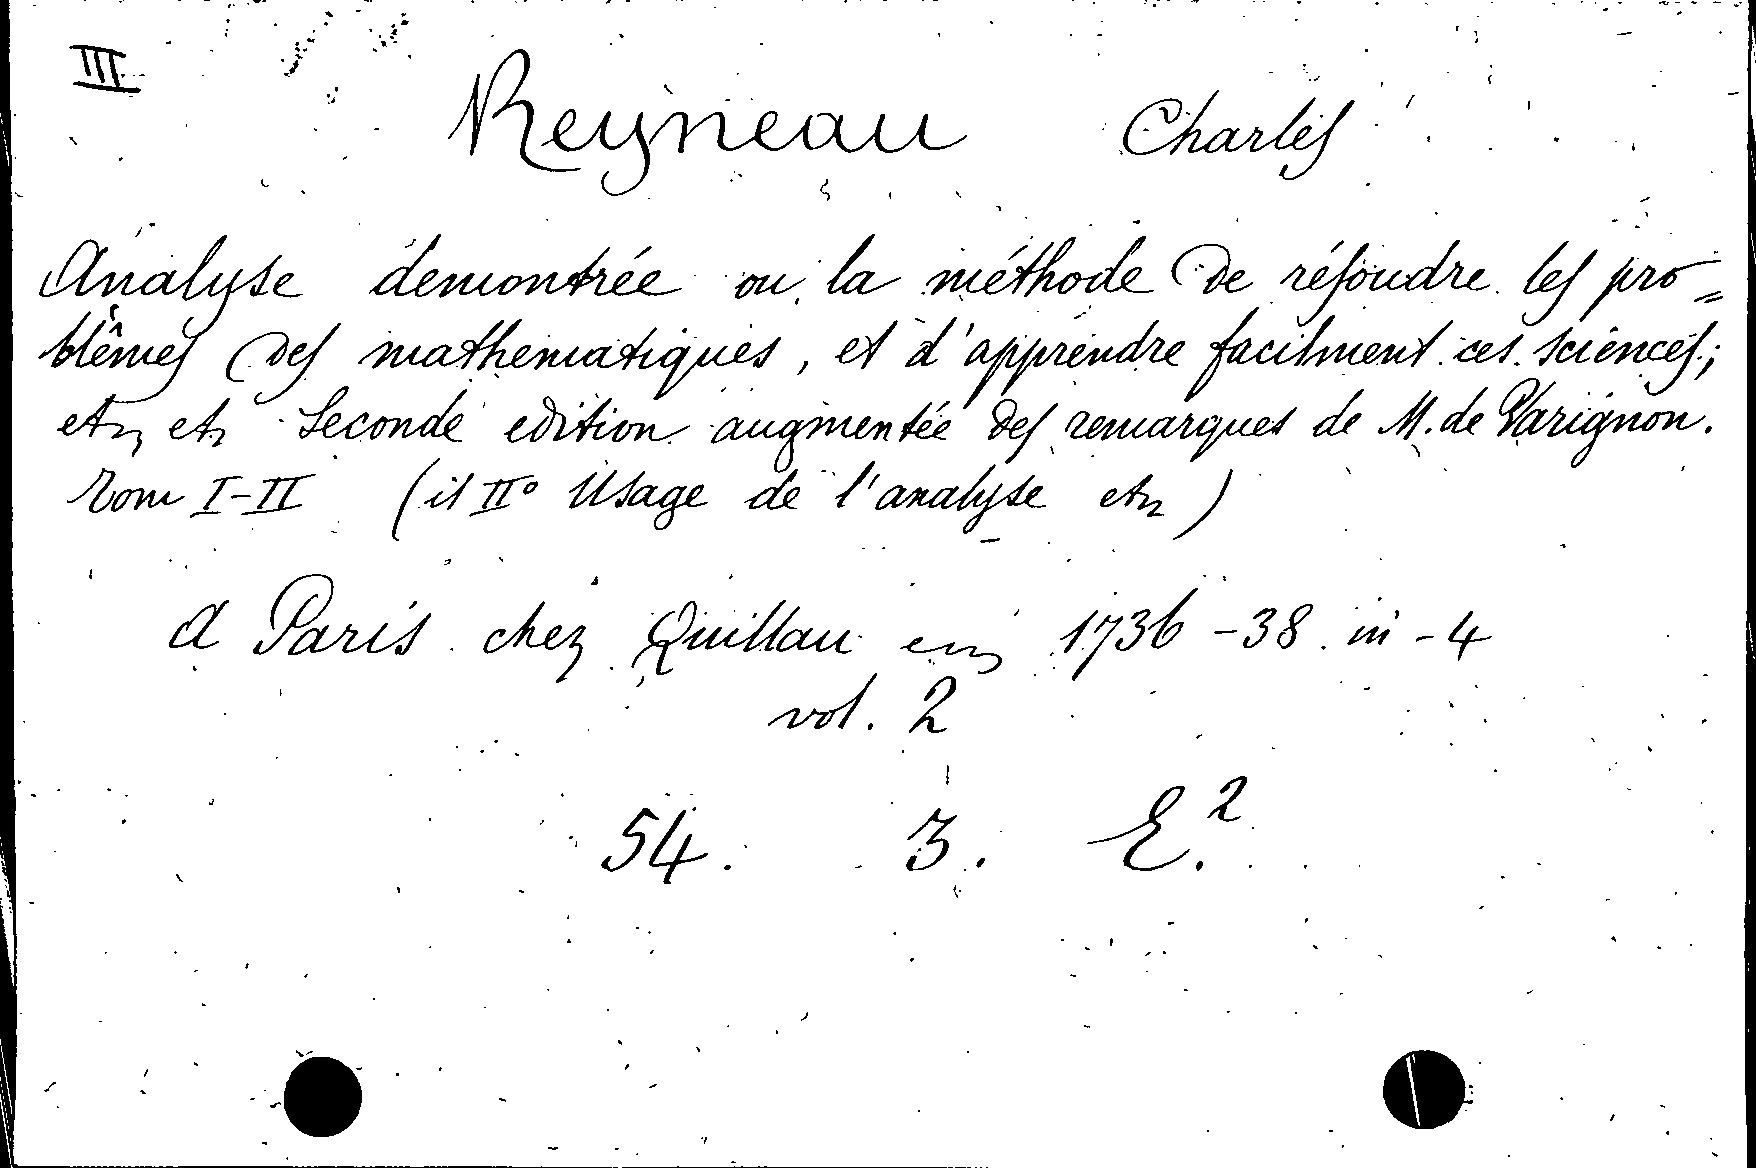 III
Reyneau Charles
Analyse demontrée ou la méthode de résoudre les pro=
blêmes des mathematiques, et d'apprendre facilment ces sciences;
etc, etc Seconde edition augmentée des remarques de M. de Varignon.
Tom I-II (il IIº Usage de l'analyse etc)
A Paris chez Quillau 1736-38 in-4
vol. 2
54. 3. E.²